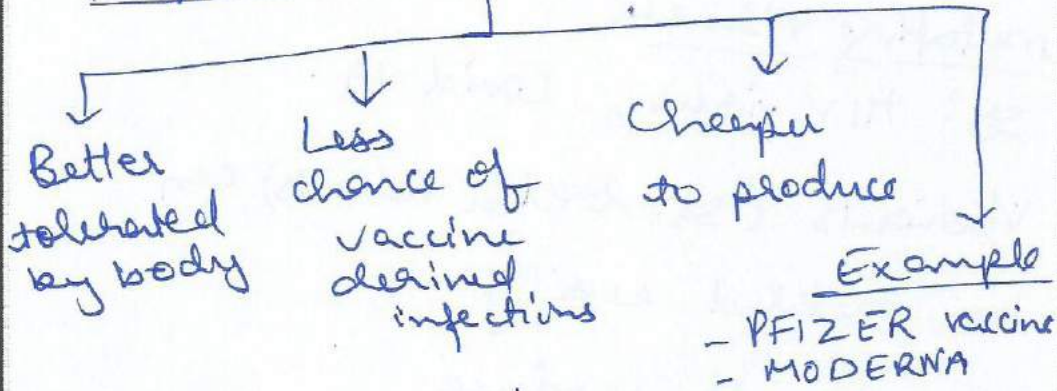 Better
tolerated
by body
Less
chance of
vaccine
derived
infections
Cheaper
to produce
Example
- PFIZER vaccine
- MODERNA